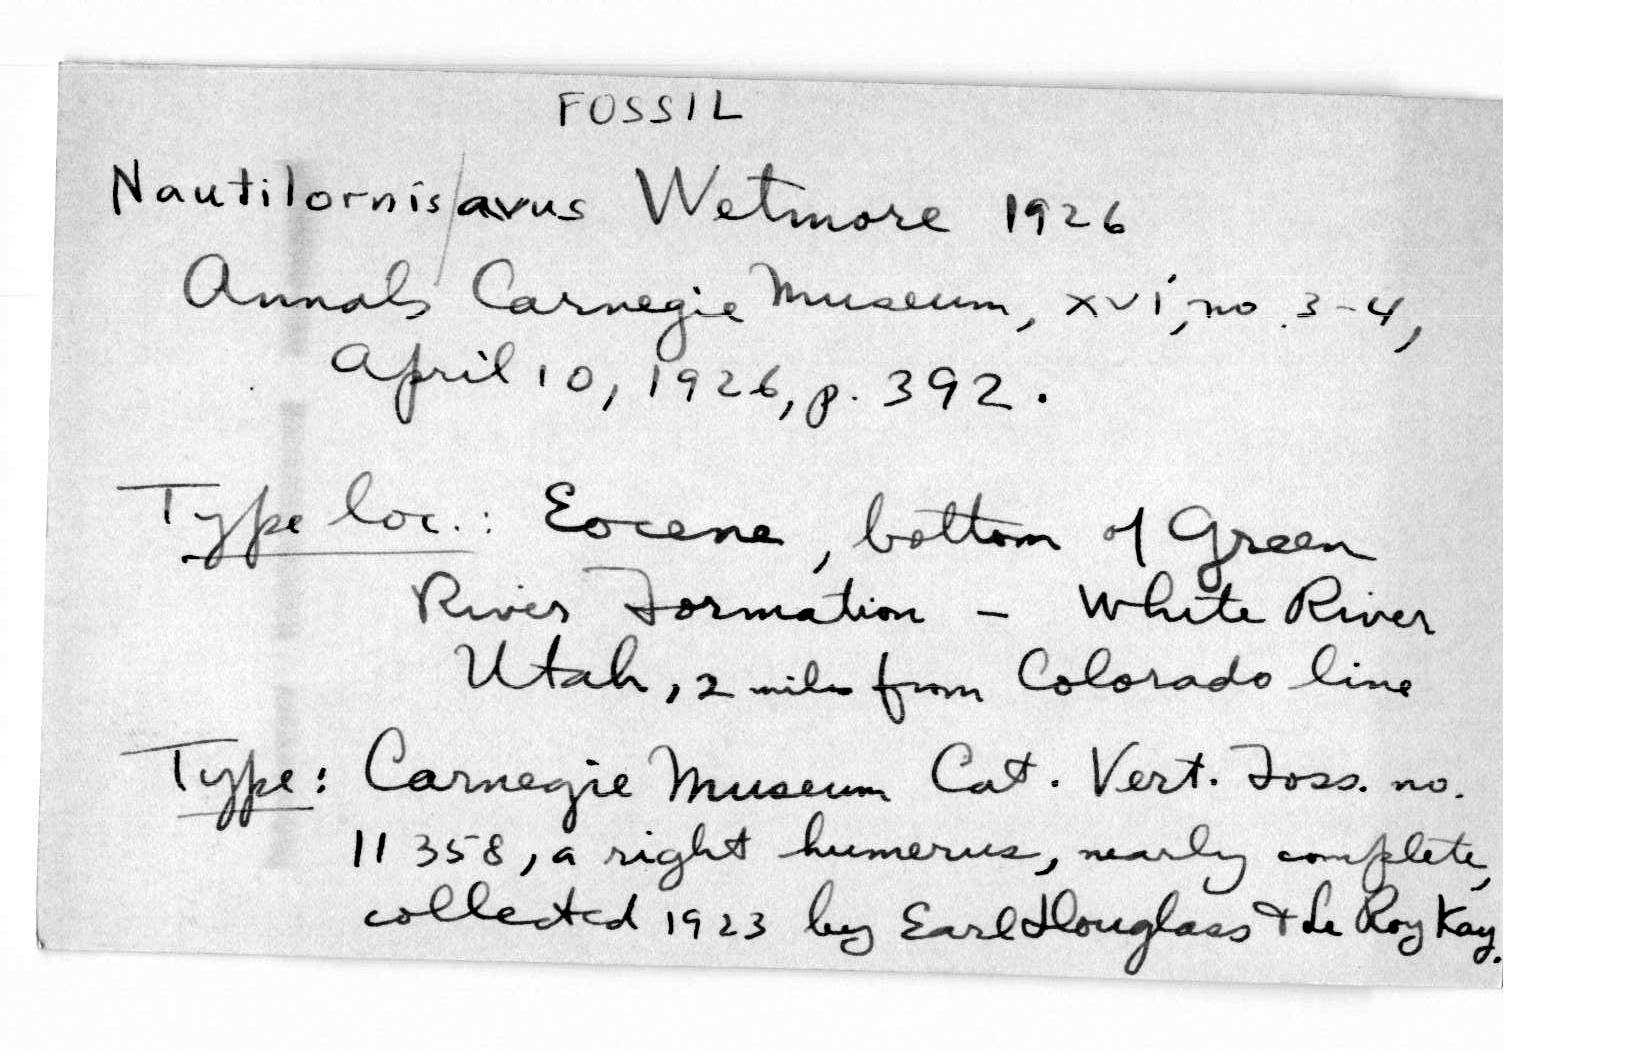 FOSSIL
Nautilornis/avus Wetmore 1926
Annals Carnegie Museum, xvi, no. 3-4,
April 10, 1926, p. 392.
Type loc.: Eocene, bottom of Green
River Formation - White River
Utah, 2 miles from Colorado line
Type: Carnegie Museum Cat. Vert. Foss. no.
11358, a right humerus, nearly complete,
collected 1923 by Earl Douglass & Le Roy Kay.